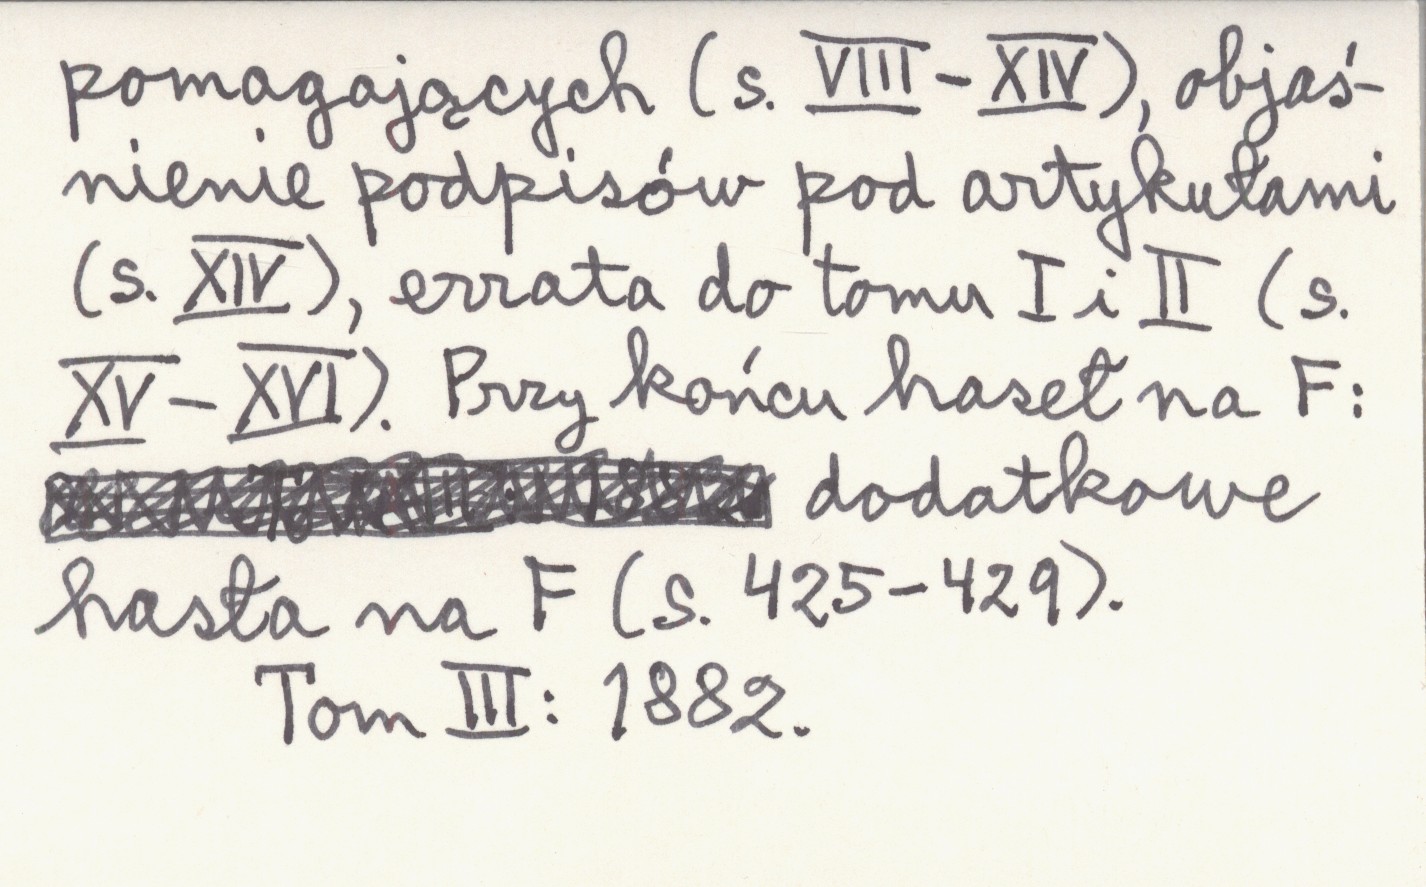 pomagających (s. VIII - XIV), objaś-
nienie podpisów pod artykułami
(s. XIV), errata do tomu I i II (s.
XV - XVI). Przy końcu haseł na F:
dodatkowe
hasła na F (s. 425-429).
Tom III: 1882.